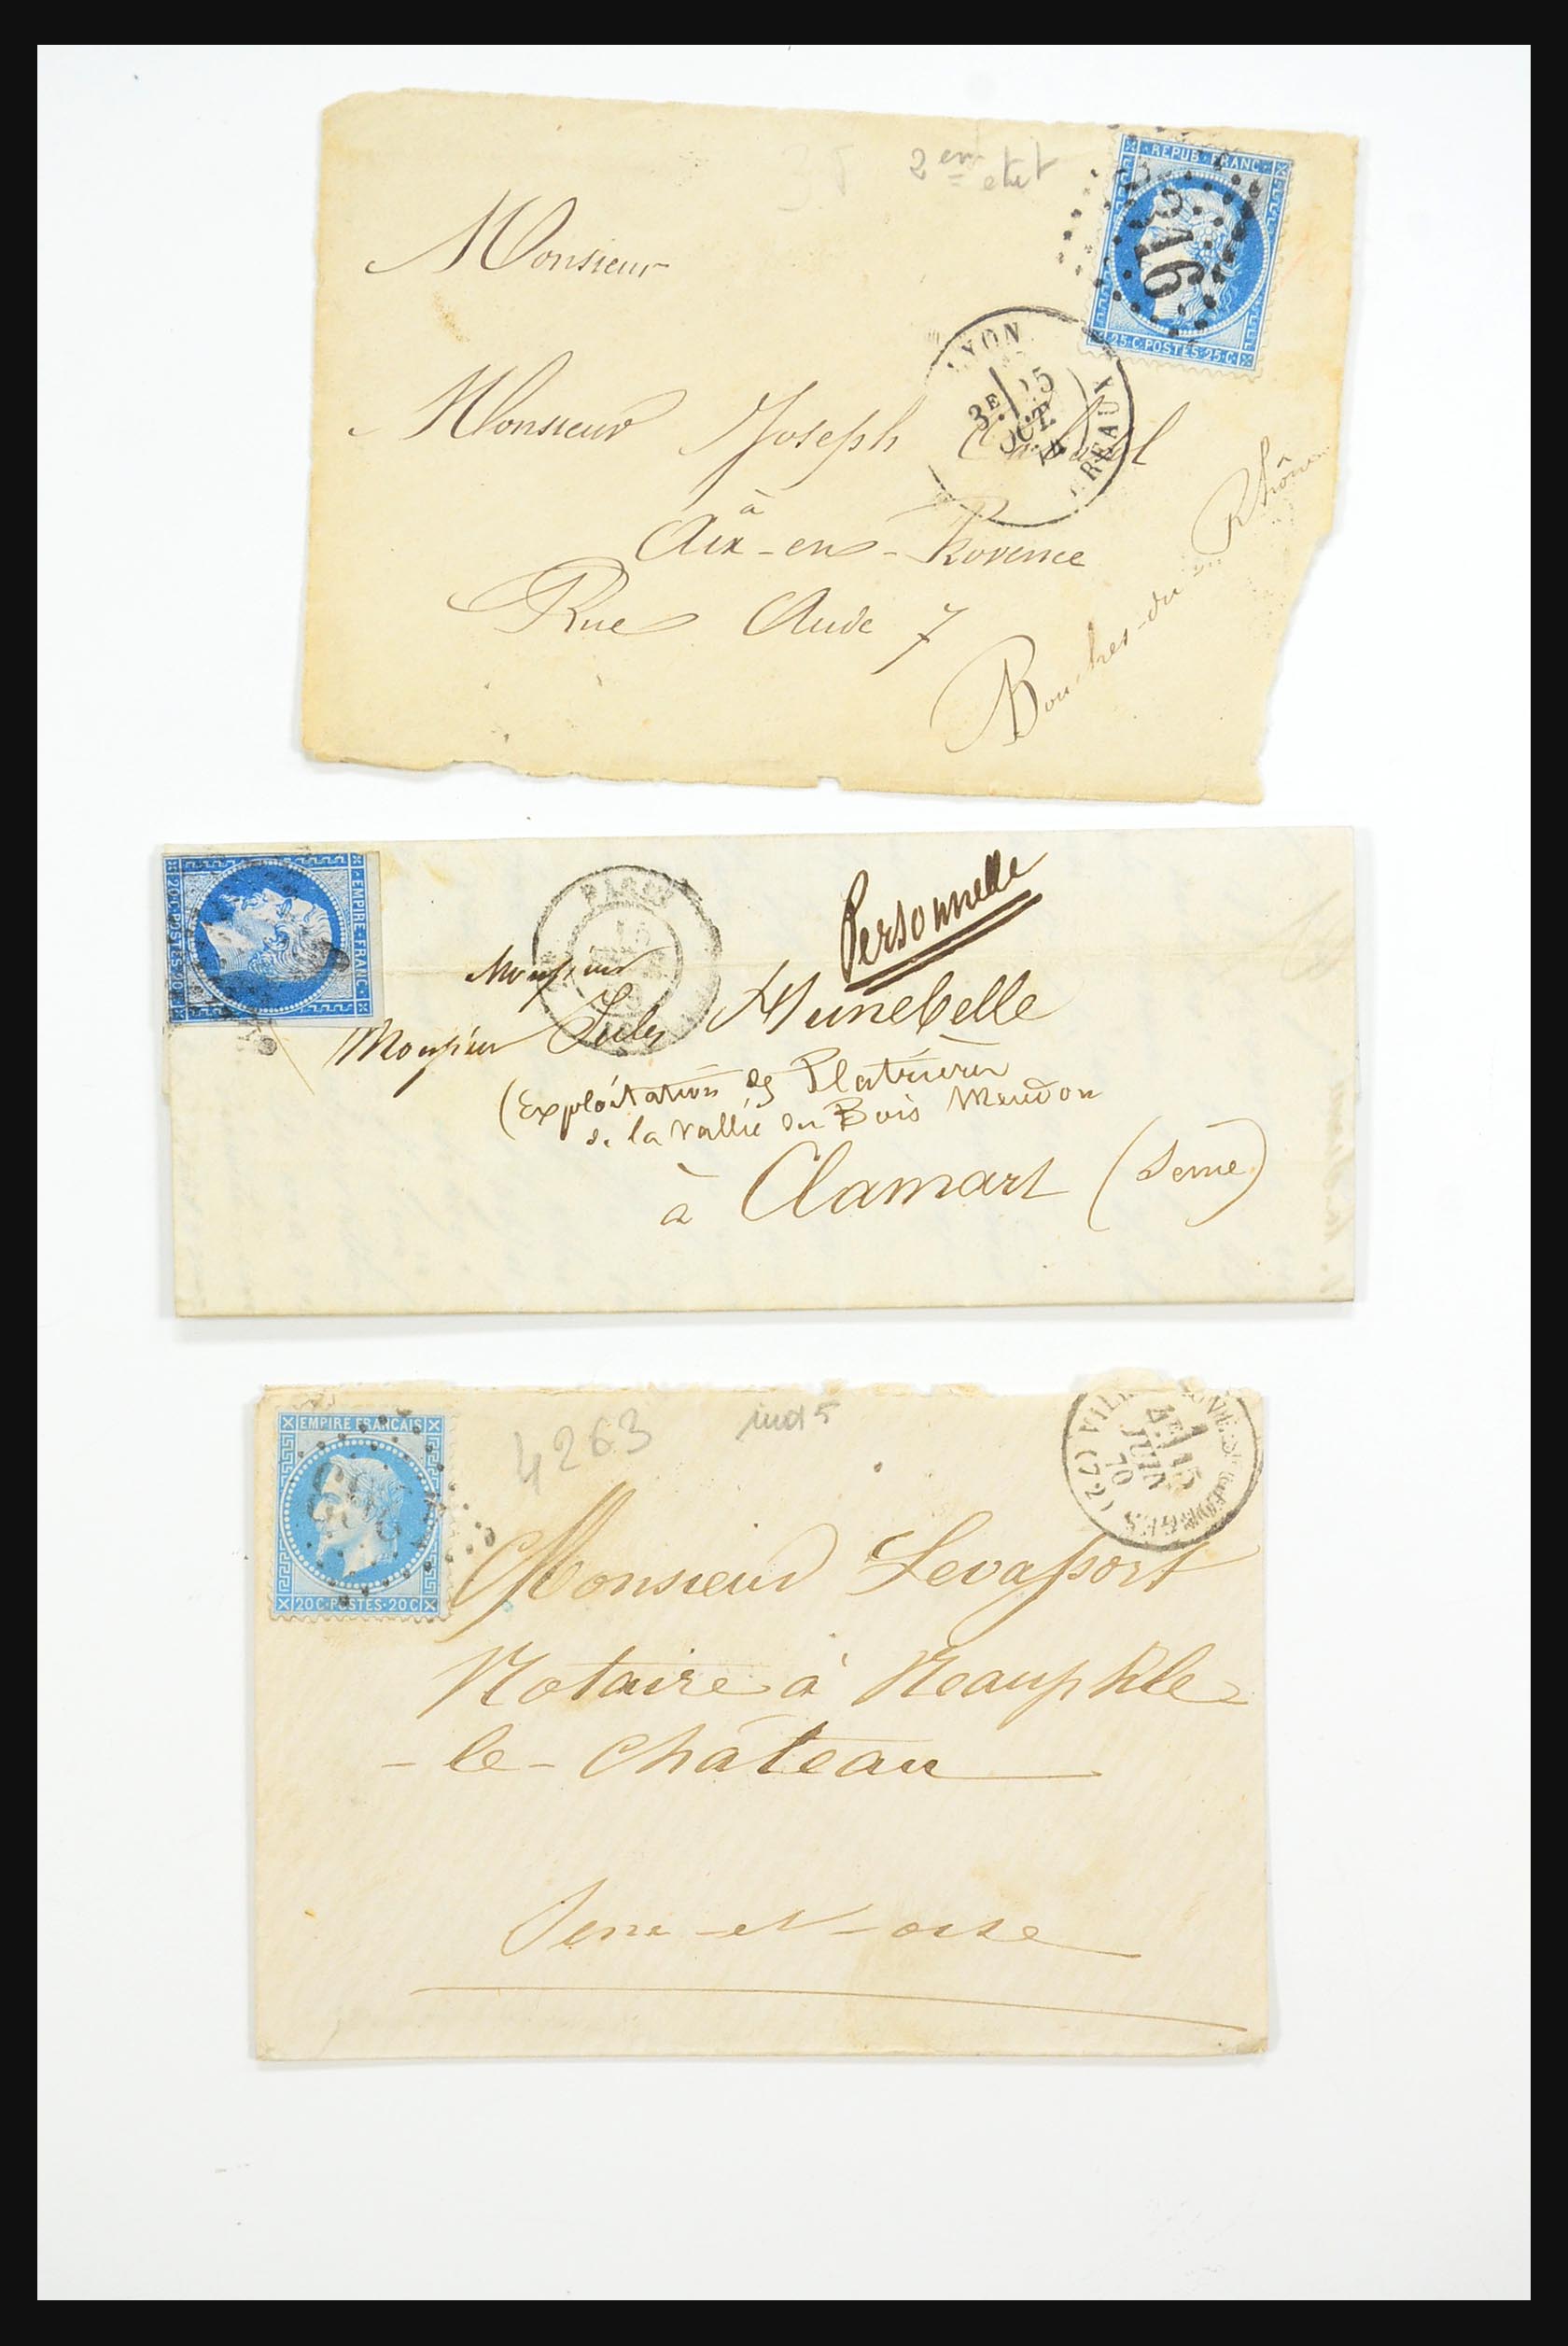 2em etat
REPUB · FRANC
316
25 · C · POSTES · 25 · C
Monsieur
LYON
3E
OCT
Monsieur Joseph
à
Aix-en-Provence
Rue Aude 7
Bouches-du-Rhône
EMPIRE · FRANC ·
20 · C · POSTES · 20 · C
PARIS
Personnelle
Monsieur
Monsieur Jules Hunebelle
(Exploitation des Platrières
de la Vallée du Bois Meudon
à Clamart (Seine)
4263 ind 5
EMPIRE FRANÇAIS
20 C · POSTES · 20 C
4E 15
JUIN
70
(72)
Monsieur Levassort
Notaire à Neauphle
-le-Château
Seine-et-oise